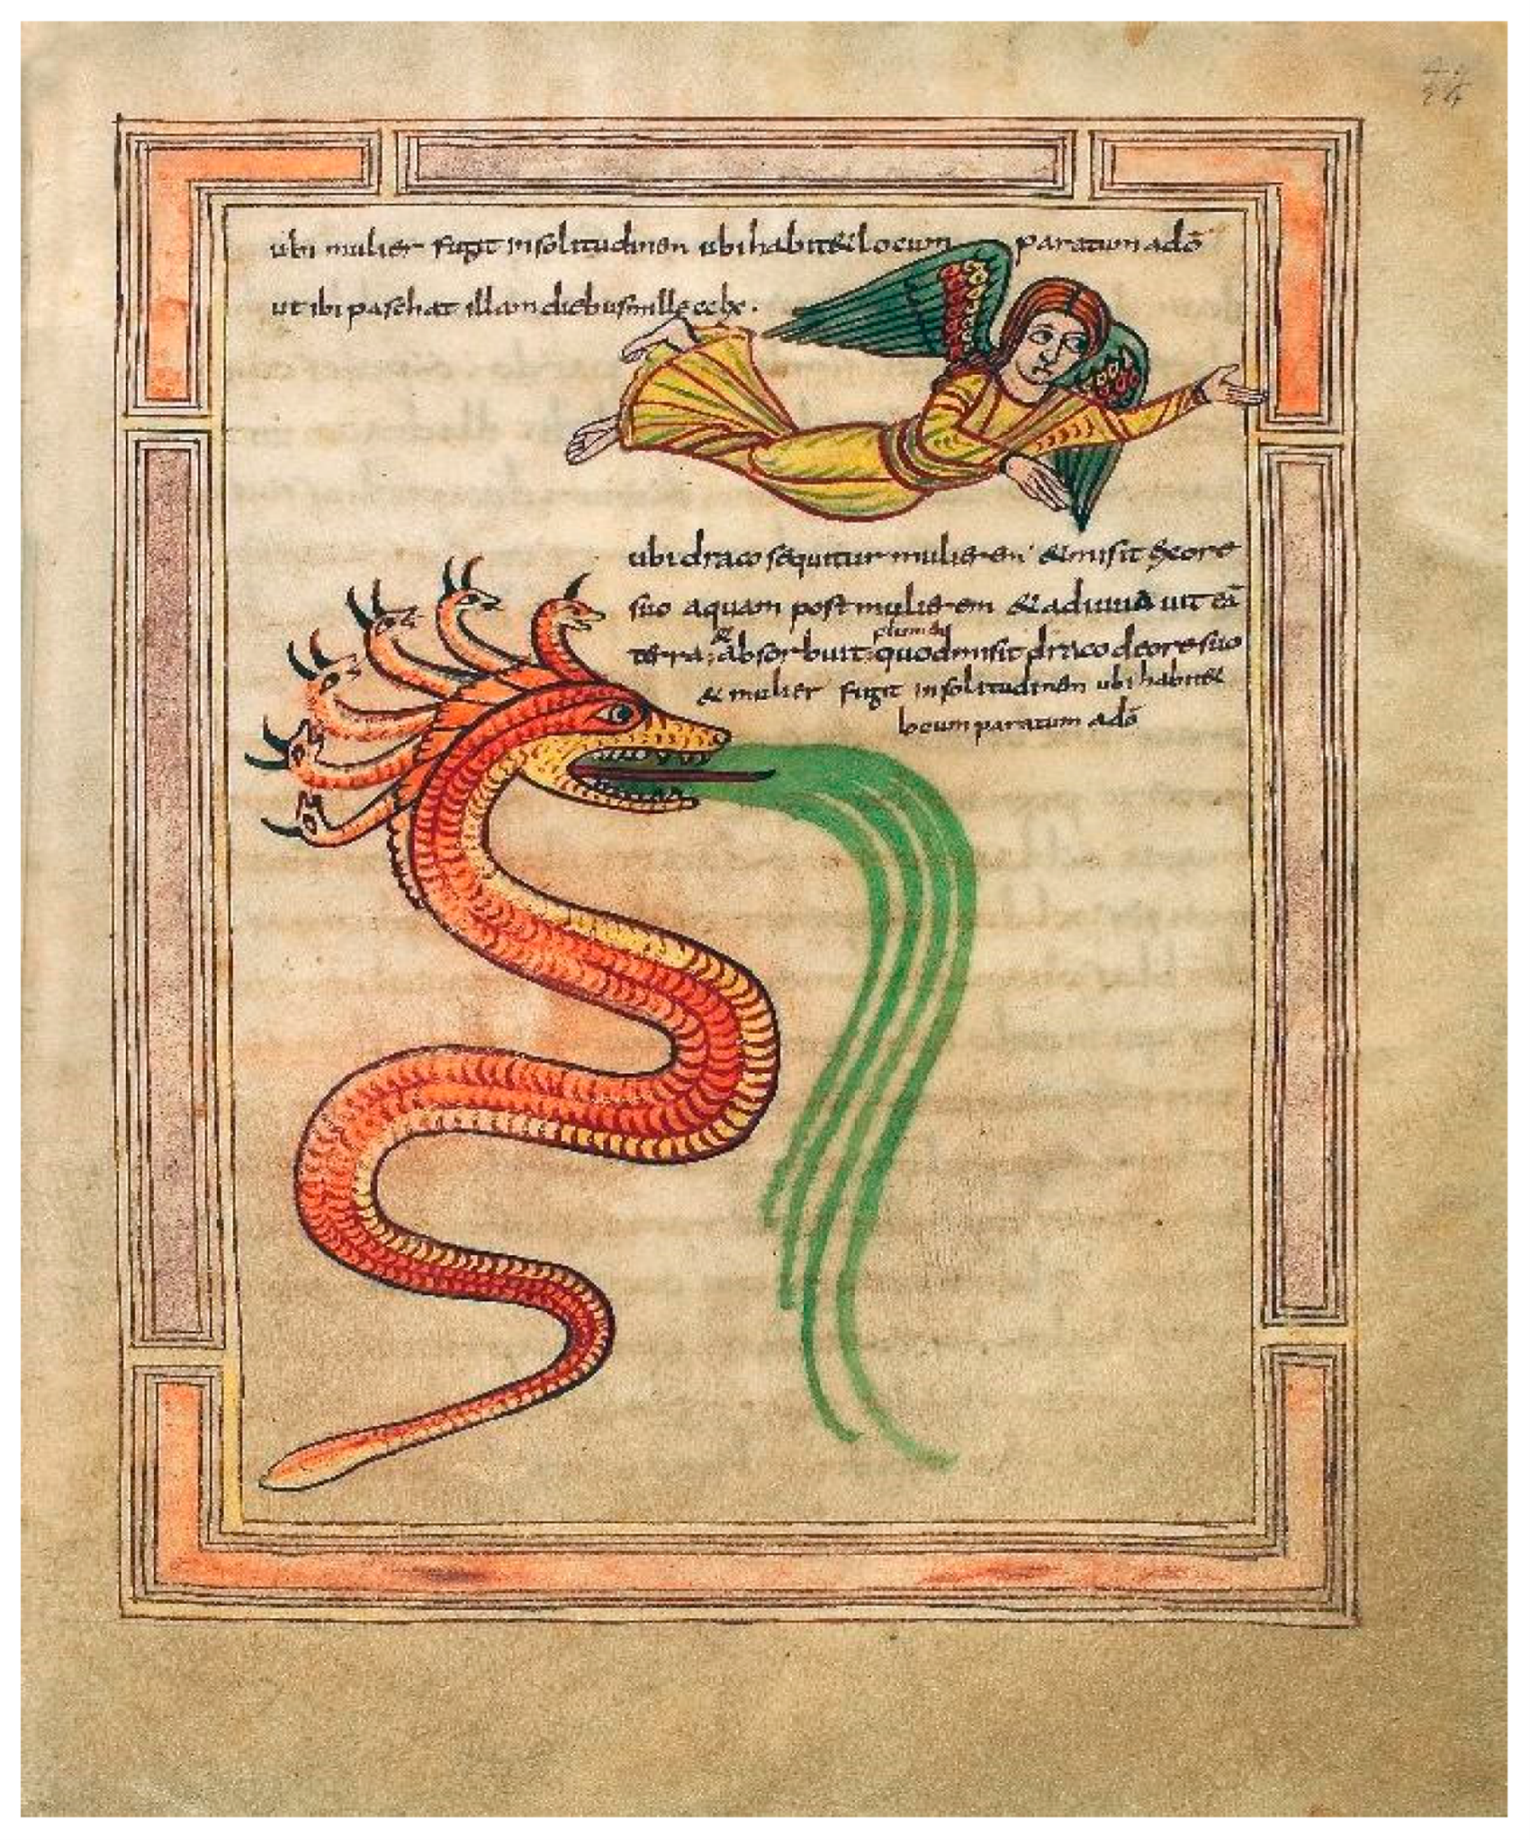 ubi mulier fugit insolitudinen ubi habit& locum paratum adō
ut ibi paschat illam diebus mille cclx.
ubi draco sequitur mulieren &misit exore
suo aquam post mulierem &adiuua uit eā
terra, & absorbuit quodmisit draco deore suo
& mulier fugit insolitudinen ubi habit&
locum paratum adō